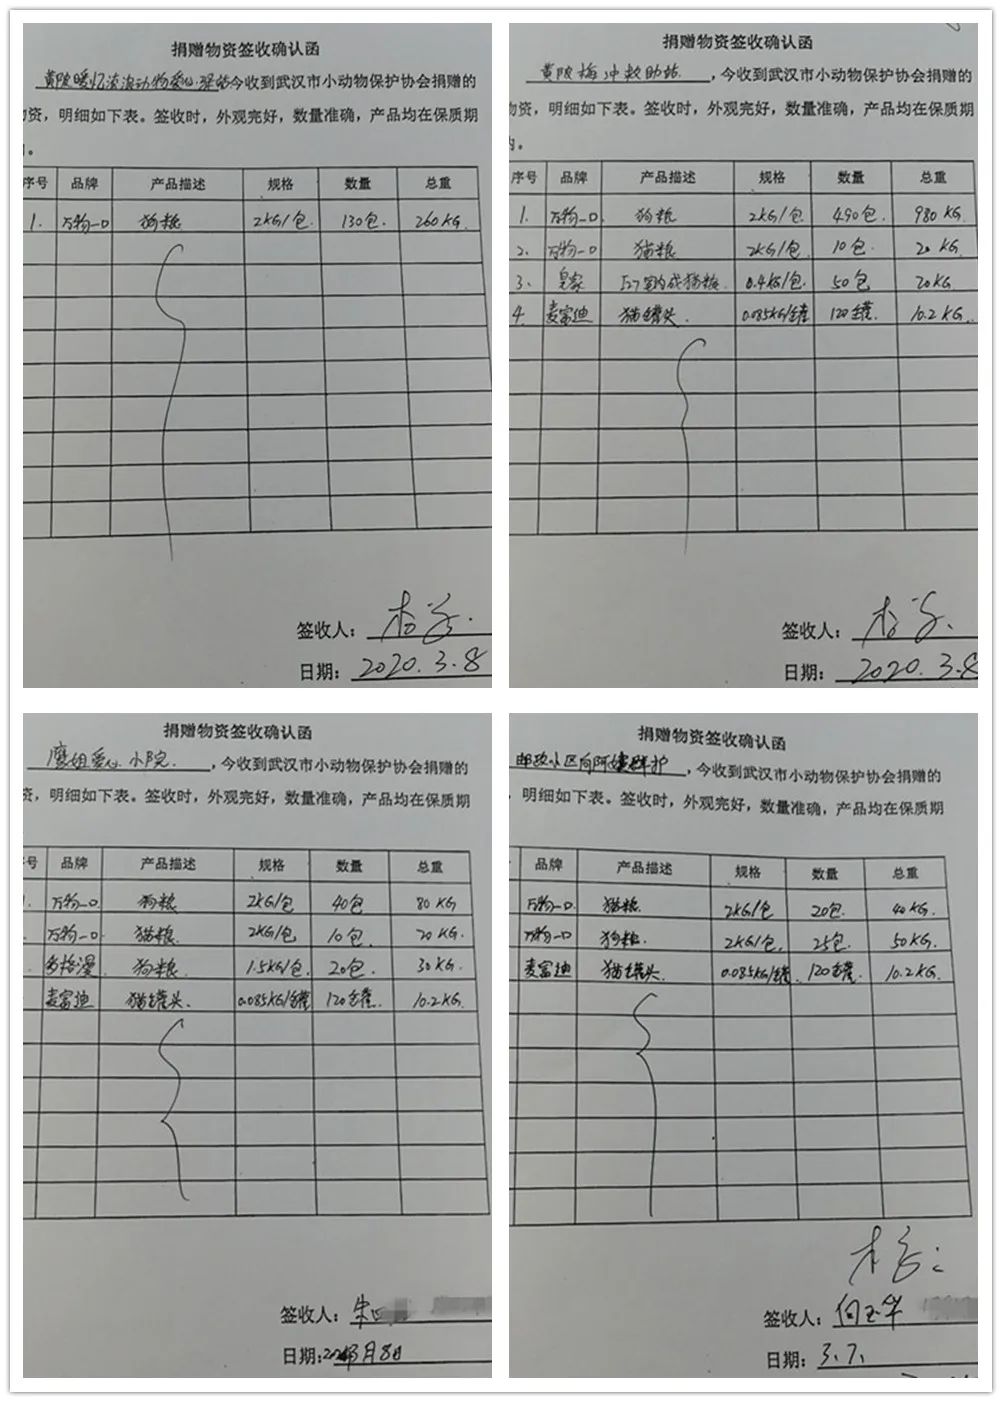 捐赠物资签收确认函
黄陂暖忆流浪动物爱心驿站今收到武汉市小动物保护协会捐赠的
资，明细如下表。签收时，外观完好，数量准确，产品均在保质期
。
序号 品牌 产品描述 规格 数量 总重
1. 万物一口 狗粮 2KG/包. 130包. 260KG.
签收人：
日期：2020.3.8
捐赠物资签收确认函
黄陂梅冲救助站，今收到武汉市小动物保护协会捐赠的
物资，明细如下表。签收时，外观完好，数量准确，产品均在保质期
。
序号 品牌 产品描述 规格 数量 总重
1. 万物一口 狗粮 2KG/包. 490包. 980KG.
2. 万物一口 猫粮 2KG/包 10包. 20KG.
3. 皇家 F27室内成猫粮 0.4KG/包. 50包 20KG
4. 麦富迪 猫罐头. 0.085KG/罐 120罐. 10.2KG.
签收人：
日期：2020.3.8
捐赠物资签收确认函
磨姐爱心小院，今收到武汉市小动物保护协会捐赠的
资，明细如下表。签收时，外观完好，数量准确，产品均在保质期
号 品牌 产品描述 规格 数量 总重
万物一口 狗粮 2KG/包 40包 80KG
万物一口 猫粮. 2KG/包 10包. 20KG.
多格漫 狗粮. 1.5KG/包. 20包. 30KG
麦富迪 猫罐头 0.085KG/罐 120罐. 10.2KG.
签收人：朱
日期：3月8日
捐赠物资签收确认函
邮政小区向阿姨群护，今收到武汉市小动物保护协会捐赠的
，明细如下表。签收时，外观完好，数量准确，产品均在保质期
品牌 产品描述 规格 数量 总重
万物一口 猫粮. 2KG/包 20包. 40KG.
万物一口 狗粮. 2KG/包. 25包. 50KG.
麦富迪 猫罐头. 0.085KG/罐 120罐. 10.2KG.
签收人：向玉华
日期：3.7.